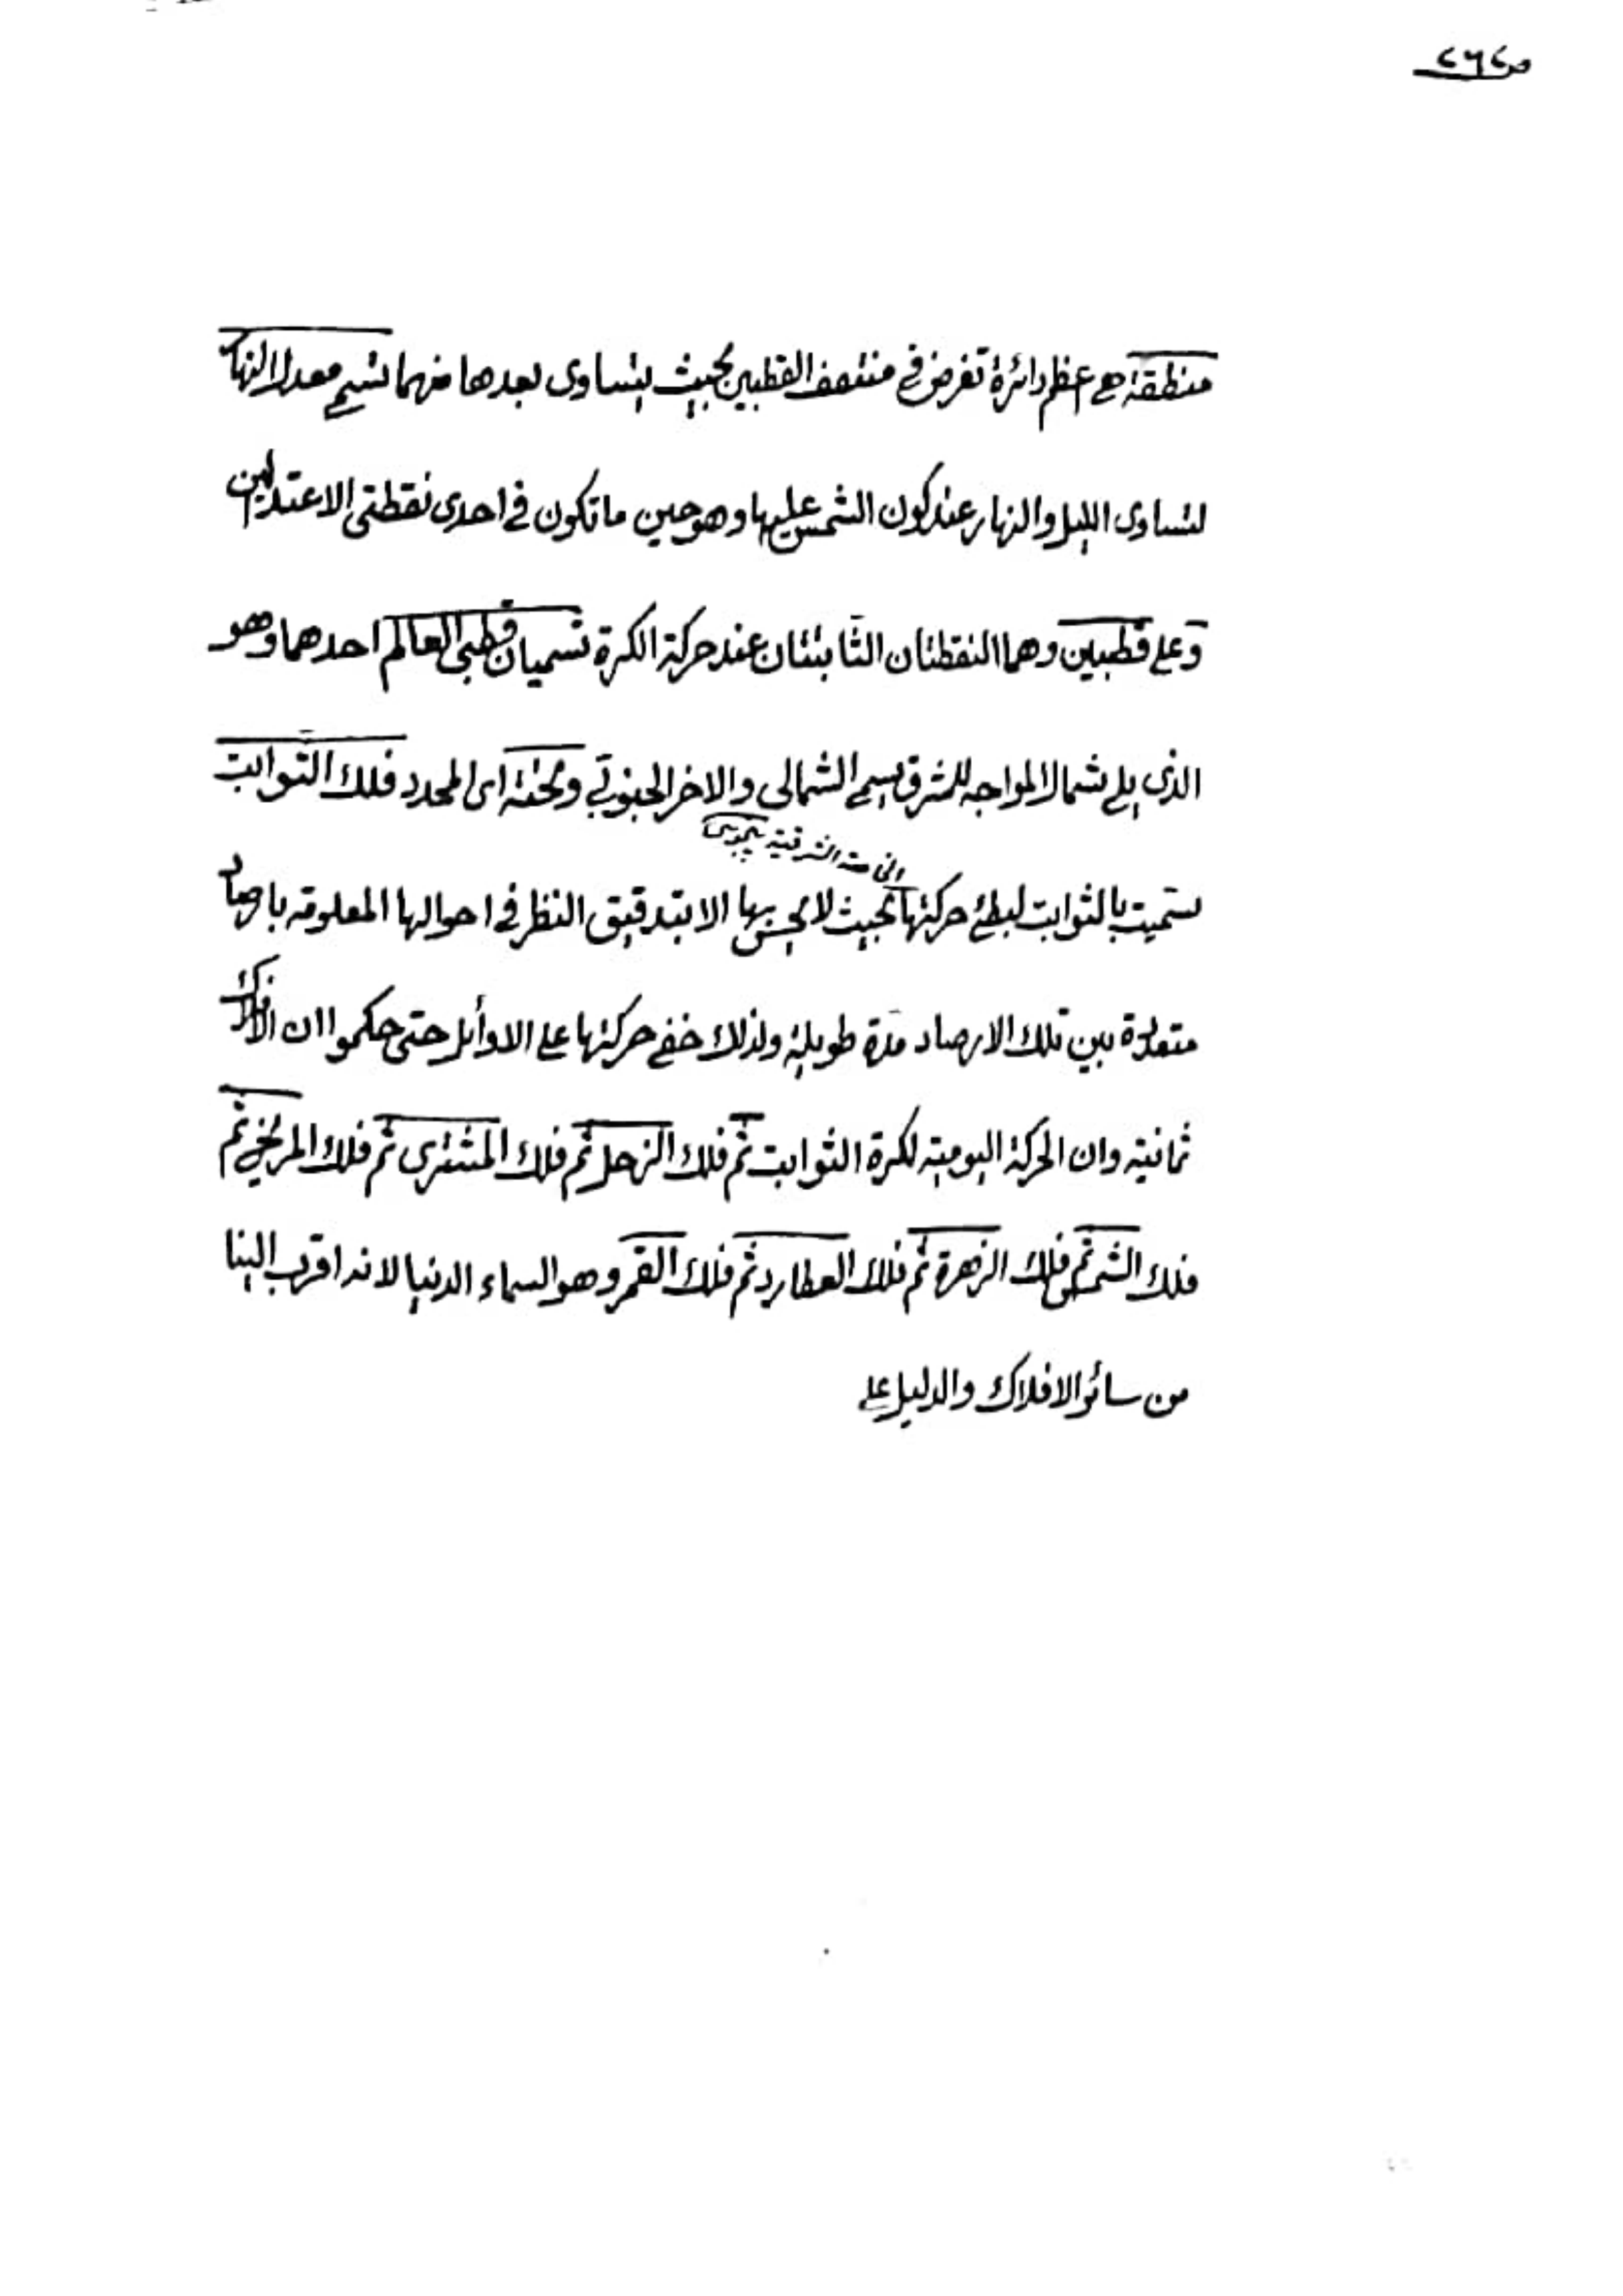 ص٢٦٢
منطقة هي عظم دائرة تفرض في منتصف القطبين بحيث يتساوى بعدها منهما تسمى معدل النهار
لتساوى الليل والنهار عند كون الشمس عليها وهو حين ما تكون في احدى نقطتي الاعتدالين
وعلى قطبين وهما النقطتان الثابتتان عند حركة الكرة تسميان قطبي العالم احدهما وهو
الذى يلي شمال المواجه للمشرق يسمى الشمالى والاخر الجنوبي وتحته اى المحدد فلك الثوابت
سميت بالثوابت لبطئ حركتها بحيث لا يحس بها الا بتدقيق النظر في احوالها المعلومة بارصاد
متعددة بين تلك الارصاد مدة طويلة ولذلك خفي حركتها على الاوائل حتى حكموا ان الافلاك
ثمانية وان الحركة اليومية لكرة الثوابت ثم فلك الزحل ثم فلك المشترى ثم فلك المريخ ثم
فلك الشمس ثم فلك الزهرة ثم فلك العطارد ثم فلك القمر وهو السماء الدنيا لانه اقرب الينا
من سائر الافلاك والدليل على